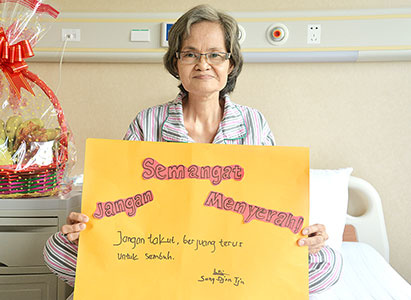 Semangat
Jangan Menyerah!
Jangan takut, berjuang terus
untuk sembuh.